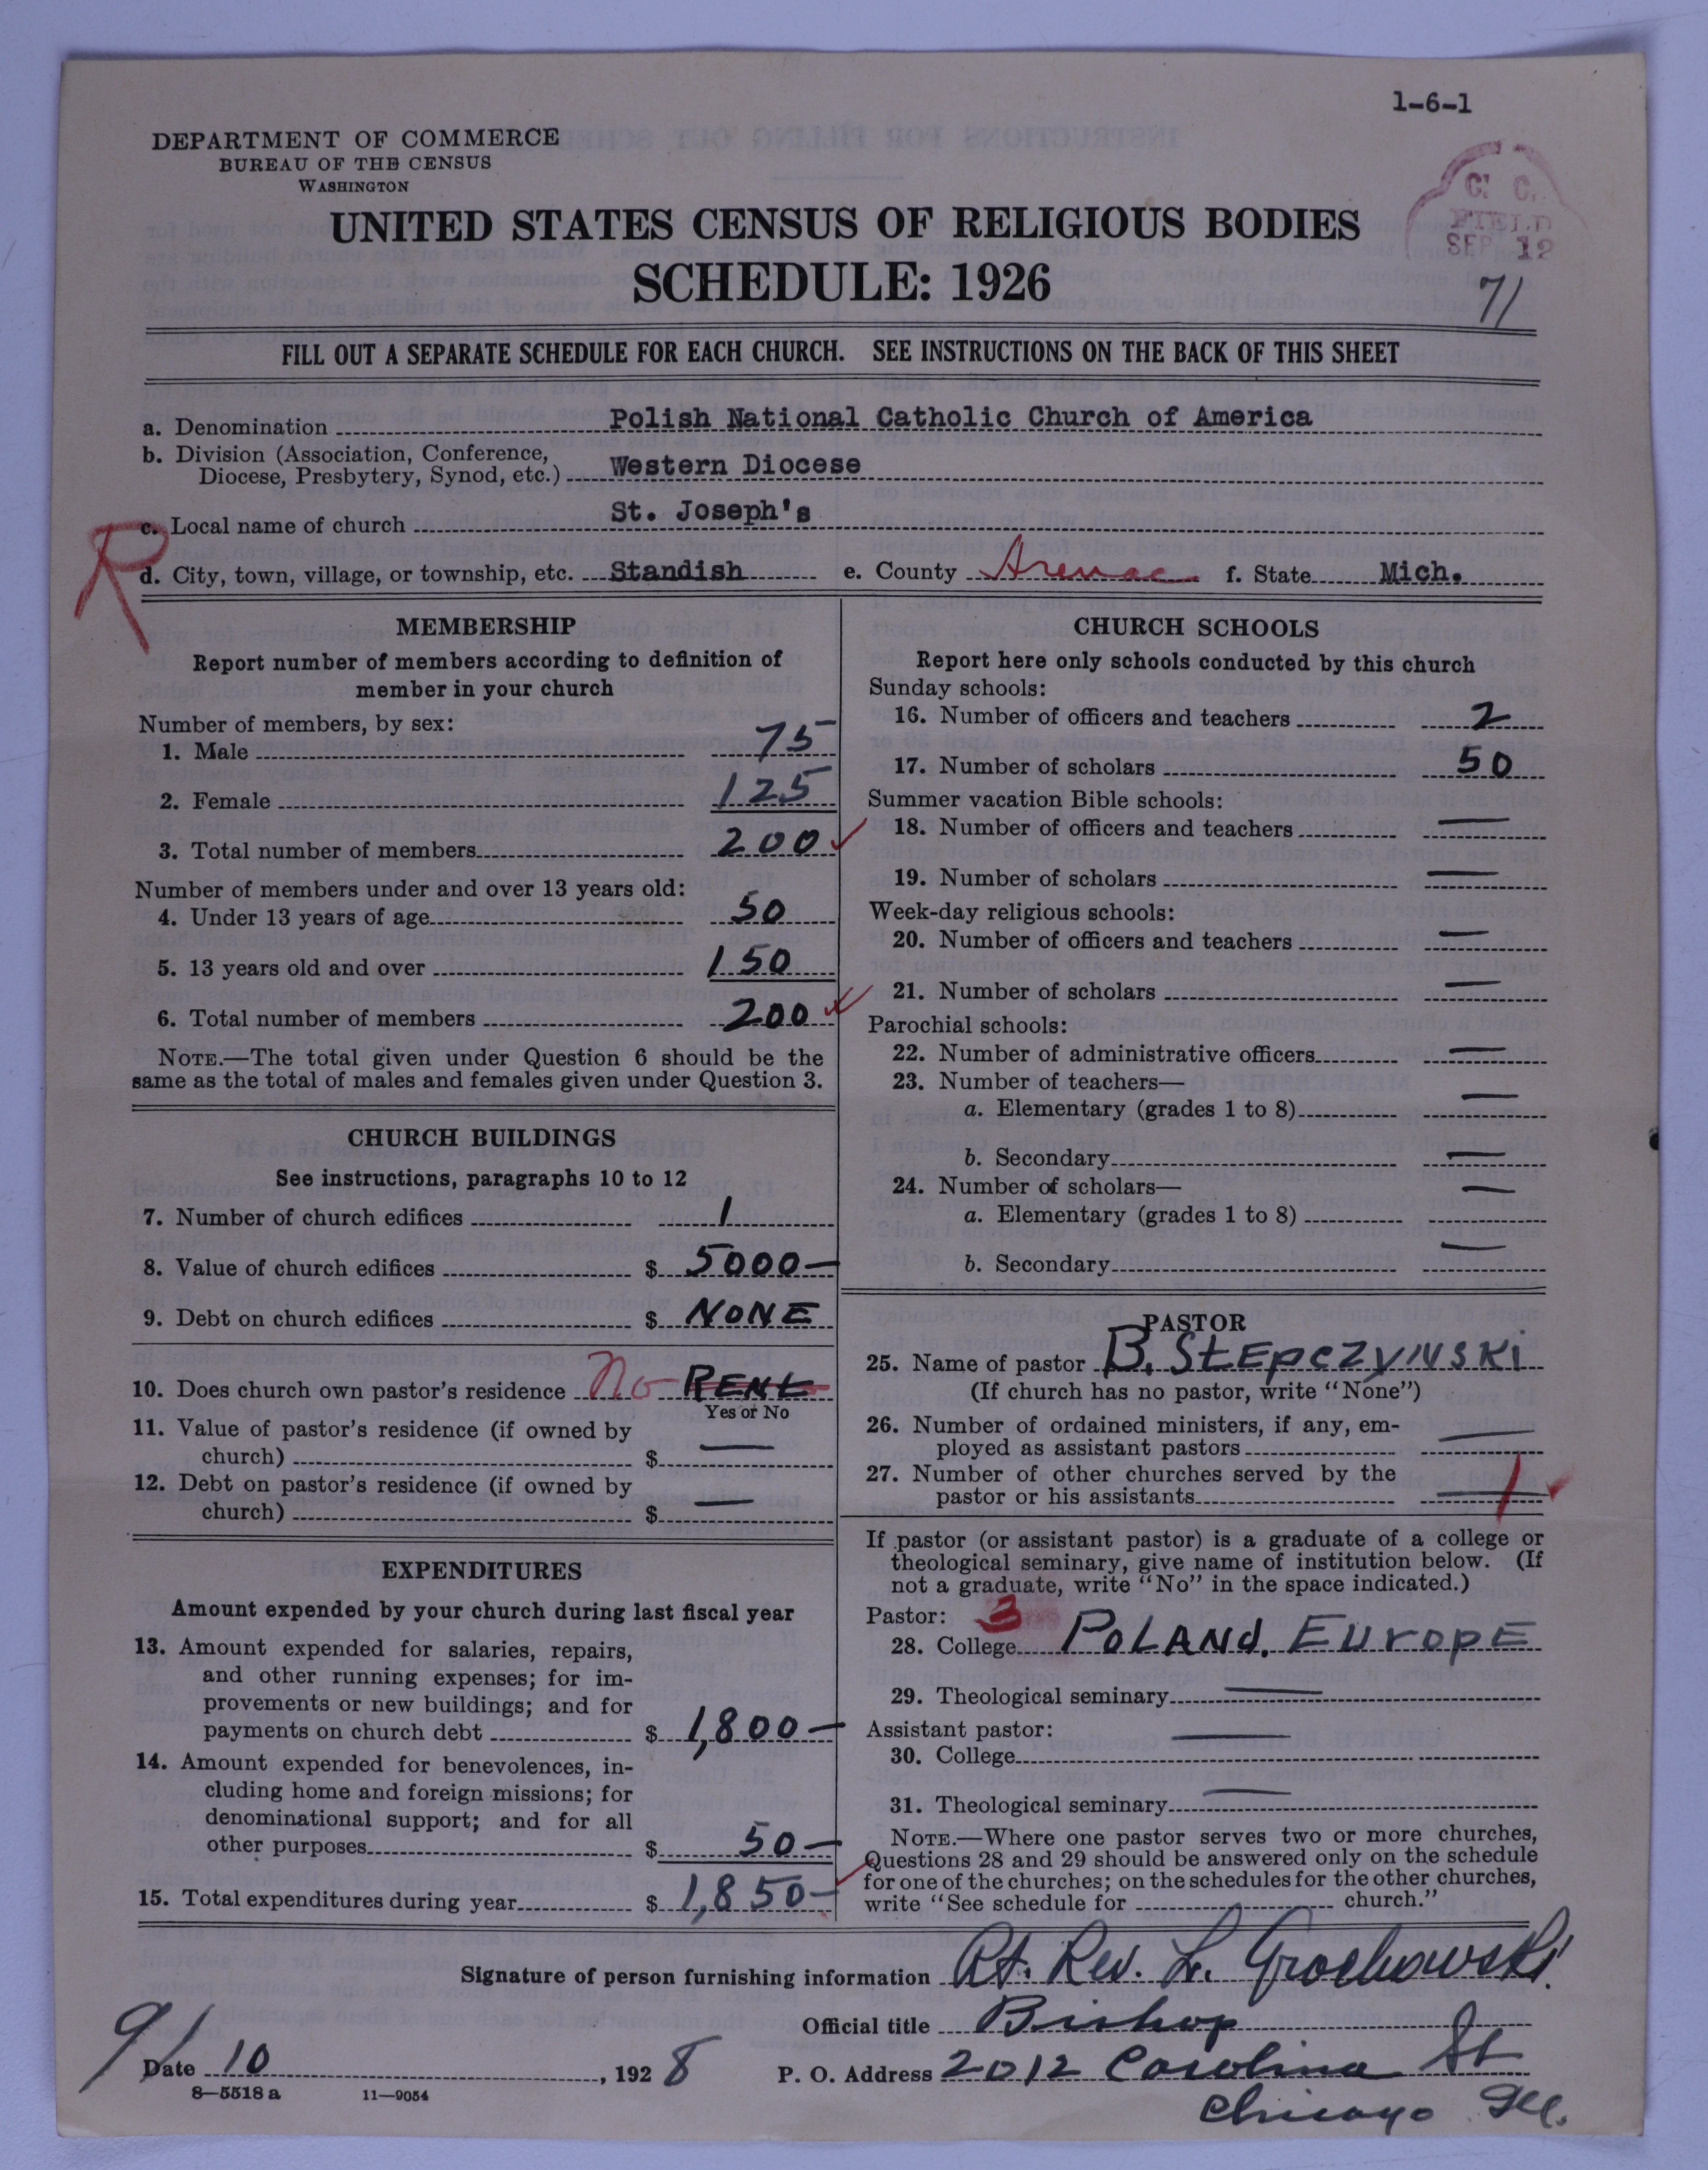 1-6-1
DEPARTMENT OF COMMERCE
BUREAU OF THE CENSUS
WASHINGTON
C. C.
FIELD
SEP 12
UNITED STATES CENSUS OF RELIGIOUS BODIES
SCHEDULE: 1926
71
FILL OUT A SEPARATE SCHEDULE FOR EACH CHURCH. SEE INSTRUCTIONS ON THE BACK OF THIS SHEET
a. Denomination Polish National Catholic Church of America
b. Division (Association, Conference,
Diocese, Presbytery, Synod, etc.) Western Diocese
R
c. Local name of church St. Joseph's
d. City, town, village, or township, etc. Standish e. County Arenac f. State Mich.
MEMBERSHIP
Report number of members according to definition of
member in your church
Number of members, by sex:
1. Male 75
2. Female 125
3. Total number of members 200 ✓
Number of members under and over 13 years old:
4. Under 13 years of age 50
5. 13 years old and over 150
6. Total number of members 200 ✓
NOTE.—The total given under Question 6 should be the
same as the total of males and females given under Question 3.
CHURCH BUILDINGS
See instructions, paragraphs 10 to 12
7. Number of church edifices 1
8. Value of church edifices $ 5000—
9. Debt on church edifices $ NONE
10. Does church own pastor's residence No RENt
Yes or No
11. Value of pastor's residence (if owned by
church) $ —
12. Debt on pastor's residence (if owned by
church) $ —
EXPENDITURES
Amount expended by your church during last fiscal year
13. Amount expended for salaries, repairs,
and other running expenses; for im-
provements or new buildings; and for
payments on church debt $ 1,800—
14. Amount expended for benevolences, in-
cluding home and foreign missions; for
denominational support; and for all
other purposes $ 50—
15. Total expenditures during year $ 1,850— ✓
CHURCH SCHOOLS
Report here only schools conducted by this church
Sunday schools:
16. Number of officers and teachers 2
17. Number of scholars 50
Summer vacation Bible schools:
18. Number of officers and teachers —
19. Number of scholars —
Week-day religious schools:
20. Number of officers and teachers —
21. Number of scholars —
Parochial schools:
22. Number of administrative officers —
23. Number of teachers—
a. Elementary (grades 1 to 8) —
b. Secondary —
24. Number of scholars—
a. Elementary (grades 1 to 8) —
b. Secondary —
PASTOR
25. Name of pastor B. StEpczyNSKi
(If church has no pastor, write "None")
26. Number of ordained ministers, if any, em-
ployed as assistant pastors —
27. Number of other churches served by the
pastor or his assistants — 1 ✓
If pastor (or assistant pastor) is a graduate of a college or
theological seminary, give name of institution below. (If
not a graduate, write "No" in the space indicated.)
Pastor: 3
28. College PoLANd, EUropE
29. Theological seminary —
Assistant pastor:
30. College —
31. Theological seminary —
NOTE.—Where one pastor serves two or more churches,
Questions 28 and 29 should be answered only on the schedule
for one of the churches; on the schedules for the other churches,
write "See schedule for church."
Signature of person furnishing information Rt. Rev. L. Grochowski
Official title Bishop
Date 9/10, 1928 P. O. Address 2012 Carolina St
Chicago Ill.
8—5518 a 11—9054